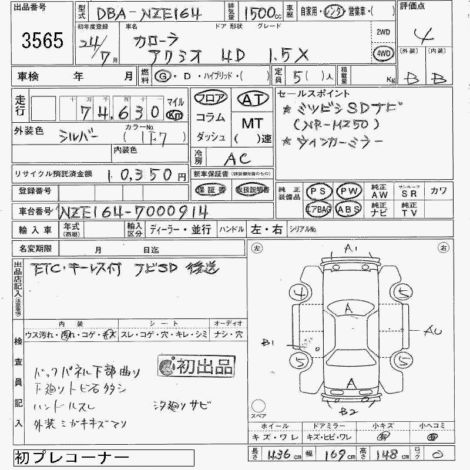 出品番号 型式 DBA-NZE164 排気量 1500cc 車歴 自家用・レンタ・営業車・( ) 評価点
3565 初年度登録 24/7月 車名 カローラ ドア 形状 グレード 2WD 4
アクシオ 4D 1.5X 4WD (外装) (内装)
車検 年 月 燃料 G・D・ハイブリッド・( ) 定員 5( )人 積載量 Kg B B
走行 74,630 マイル Km フロア AT セールスポイント
コラム MT ★ミツビシSDナビ
外装色 シルバー カラーNo. (1F7) ダッシュ ( )速 (NR-MZ50)
内装色 冷房 AC ★ウインカーミラー
リサイクル預託済金額 10,350円 新車保証書
登録番号 保証書 取扱説明書 純正装備品 PS PW 純正AW サンルーフSR カワ
車台番号 NZE164-7000914 エアBAG ABS 純正ナビ 純正TV
輸入車 年式 モデル 輸入区分 ディーラー・並行 ハンドル 左・右 シリアルNo.
名変期限 月 日迄
出品店記入 (注意事項) ETC・キーレス付 ナビSD 後送
内装 シート オーディオ
ウス汚れ・汚れ・コゲ・キズ スレ・コゲ・穴・キレ・シミ ナシ・穴
検査員記入 バックパネル下部曲り 初出品
下廻りトビ石タタシ
ハンドルスレ 下廻りサビ
外装ミガキキズマリ
左 右
A1
4 5
B1 AU
5 5
A
A
B2
スペア
ホイール ドアミラー 小キズ 小ヘコミ
キズ・ワレ キズ・ヒビ・ワレ
初プレコーナー 長さ 436cm 幅 169cm 高さ 148cm ロック 0